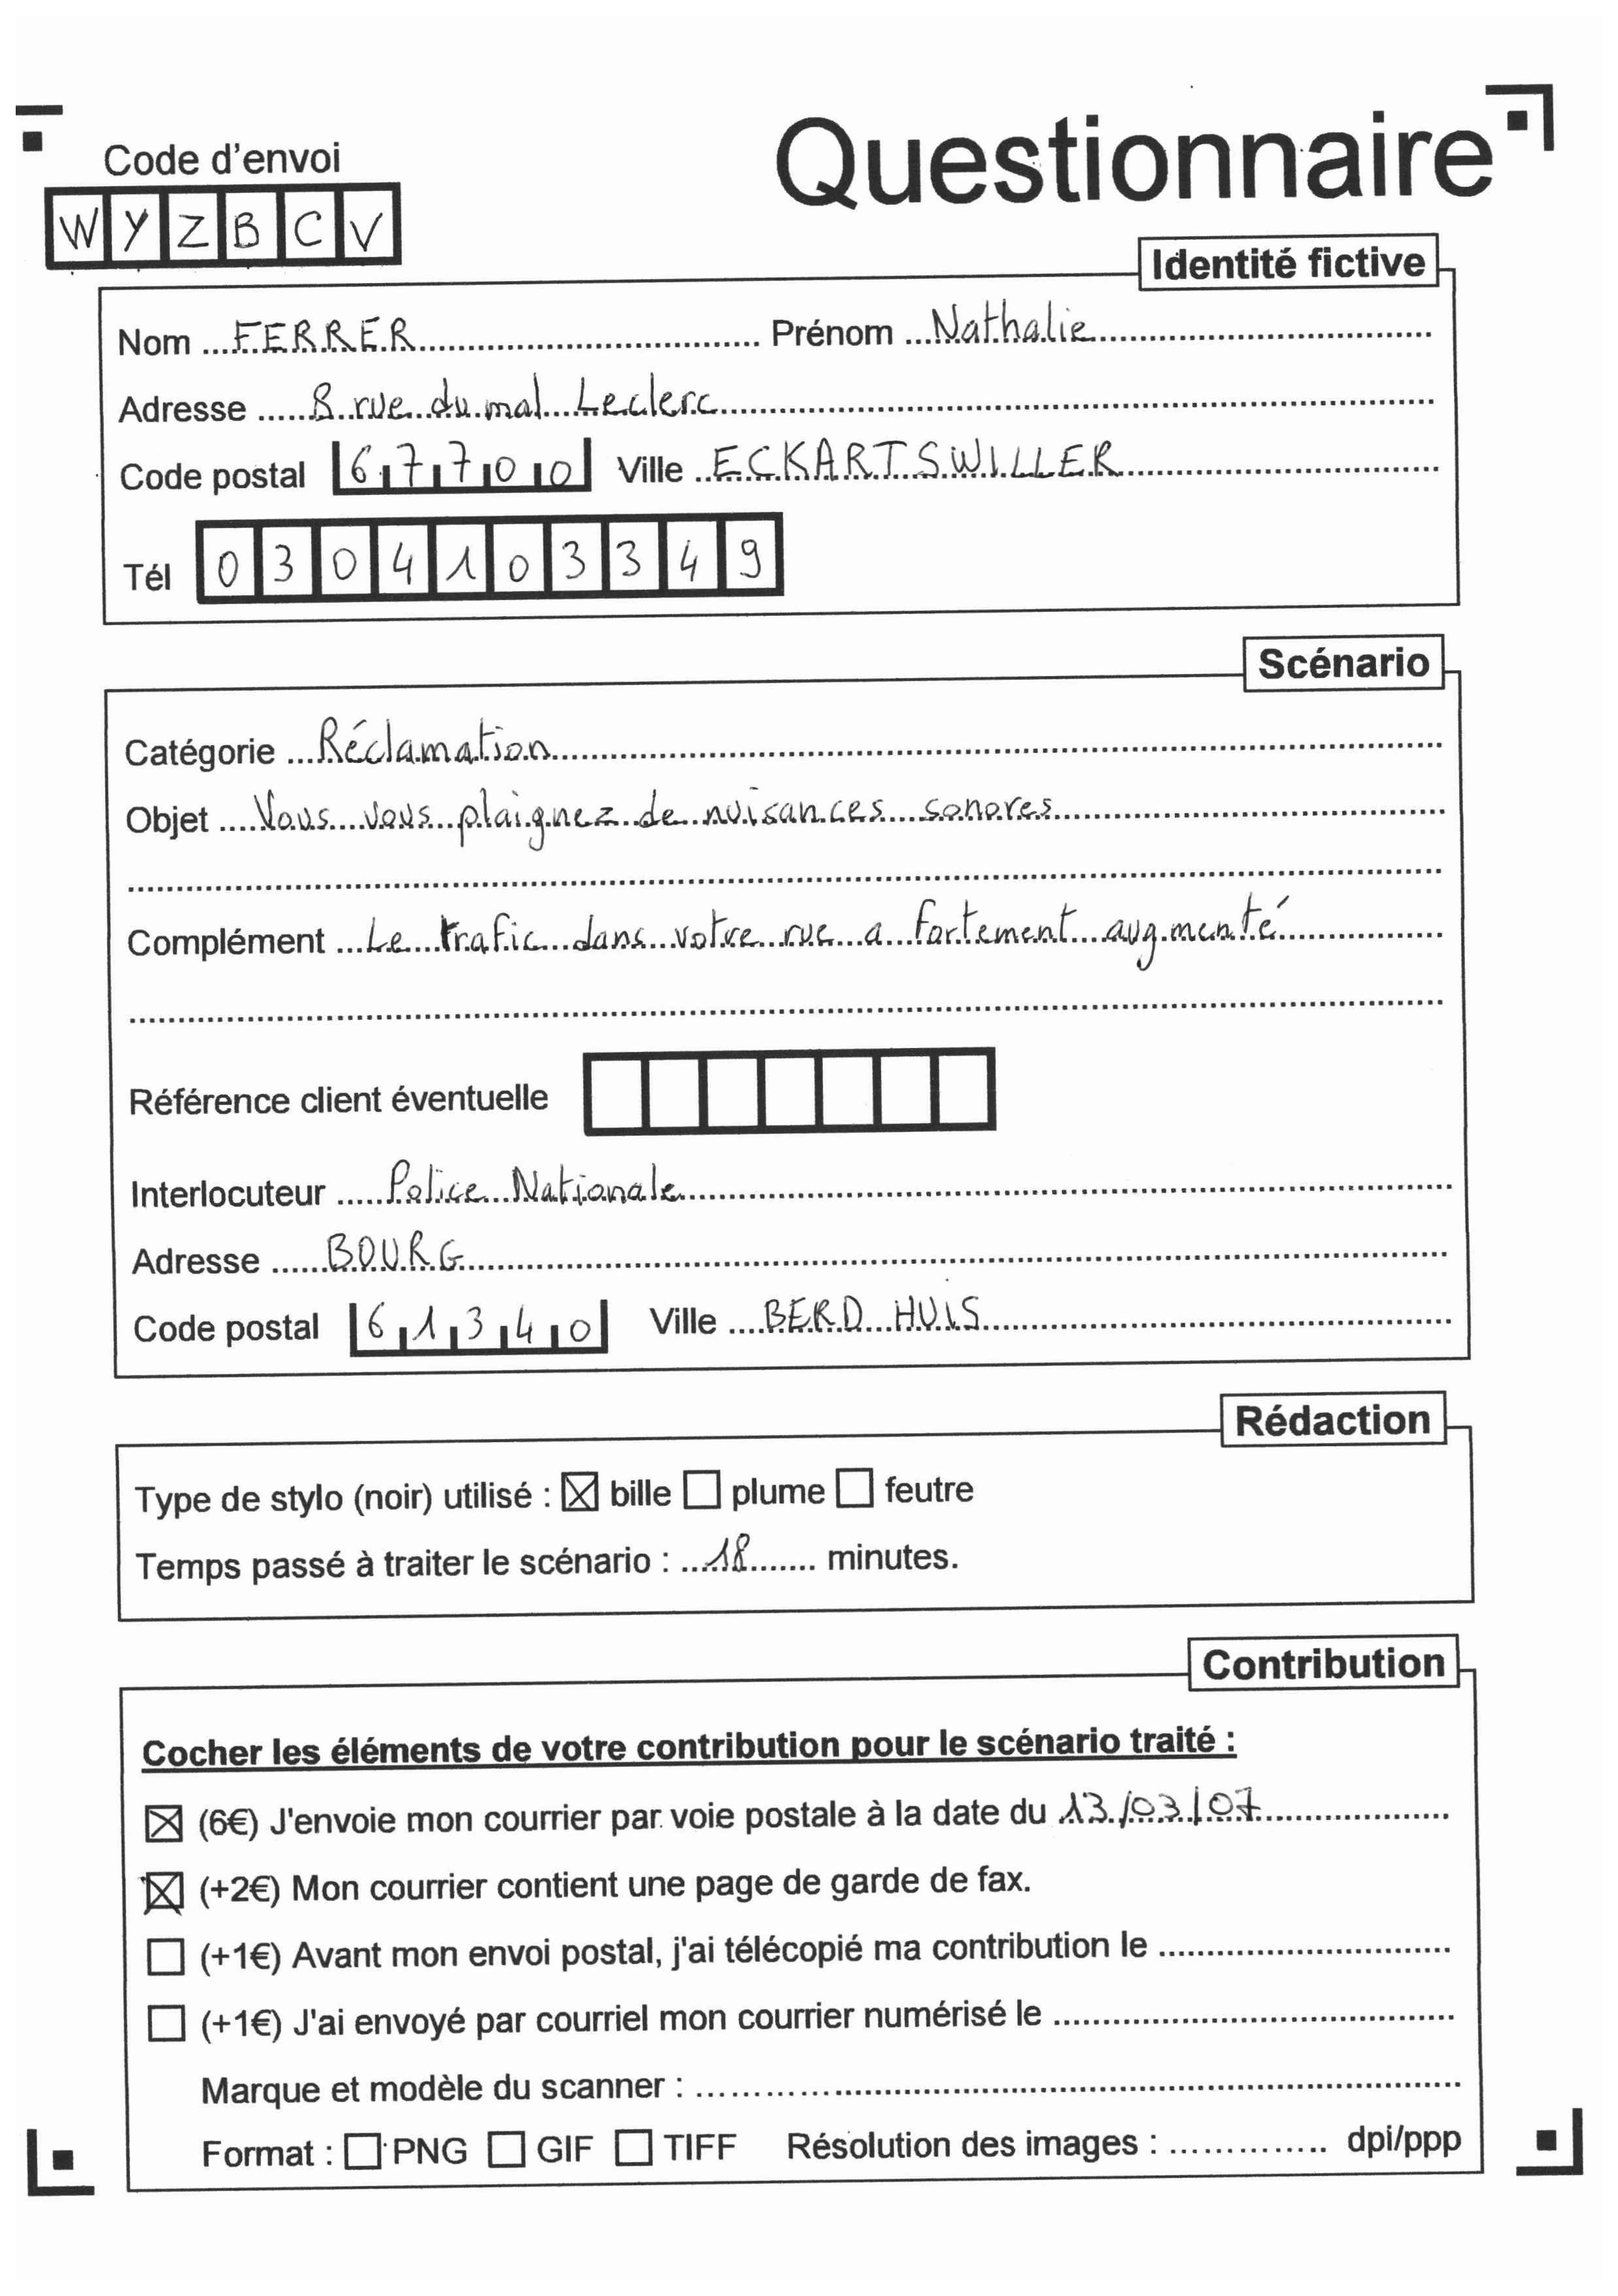 Questionnaire
Code d'envoi
W Y Z B C V
Identité fictive
Nom FERRER Prénom Nathalie
Adresse 8 rue du mal Leclerc
Code postal 67700 Ville ECKARTSWILLER
Tél 0304103349
Scénario
Catégorie Réclamation
Objet Vous vous plaignez de nuisances sonores
Complément Le trafic dans votre rue a fortement augmenté
Référence client éventuelle
Interlocuteur Police Nationale
Adresse BOURG
Code postal 61340 Ville BERD HUIS
Rédaction
Type de stylo (noir) utilisé : ☒ bille ☐ plume ☐ feutre
Temps passé à traiter le scénario : 18 minutes.
Contribution
Cocher les éléments de votre contribution pour le scénario traité :
☒ (6€) J'envoie mon courrier par voie postale à la date du 13/03/07
☒ (+2€) Mon courrier contient une page de garde de fax.
☐ (+1€) Avant mon envoi postal, j'ai télécopié ma contribution le
☐ (+1€) J'ai envoyé par courriel mon courrier numérisé le
Marque et modèle du scanner :
Format : ☐ PNG ☐ GIF ☐ TIFF Résolution des images : dpi/ppp